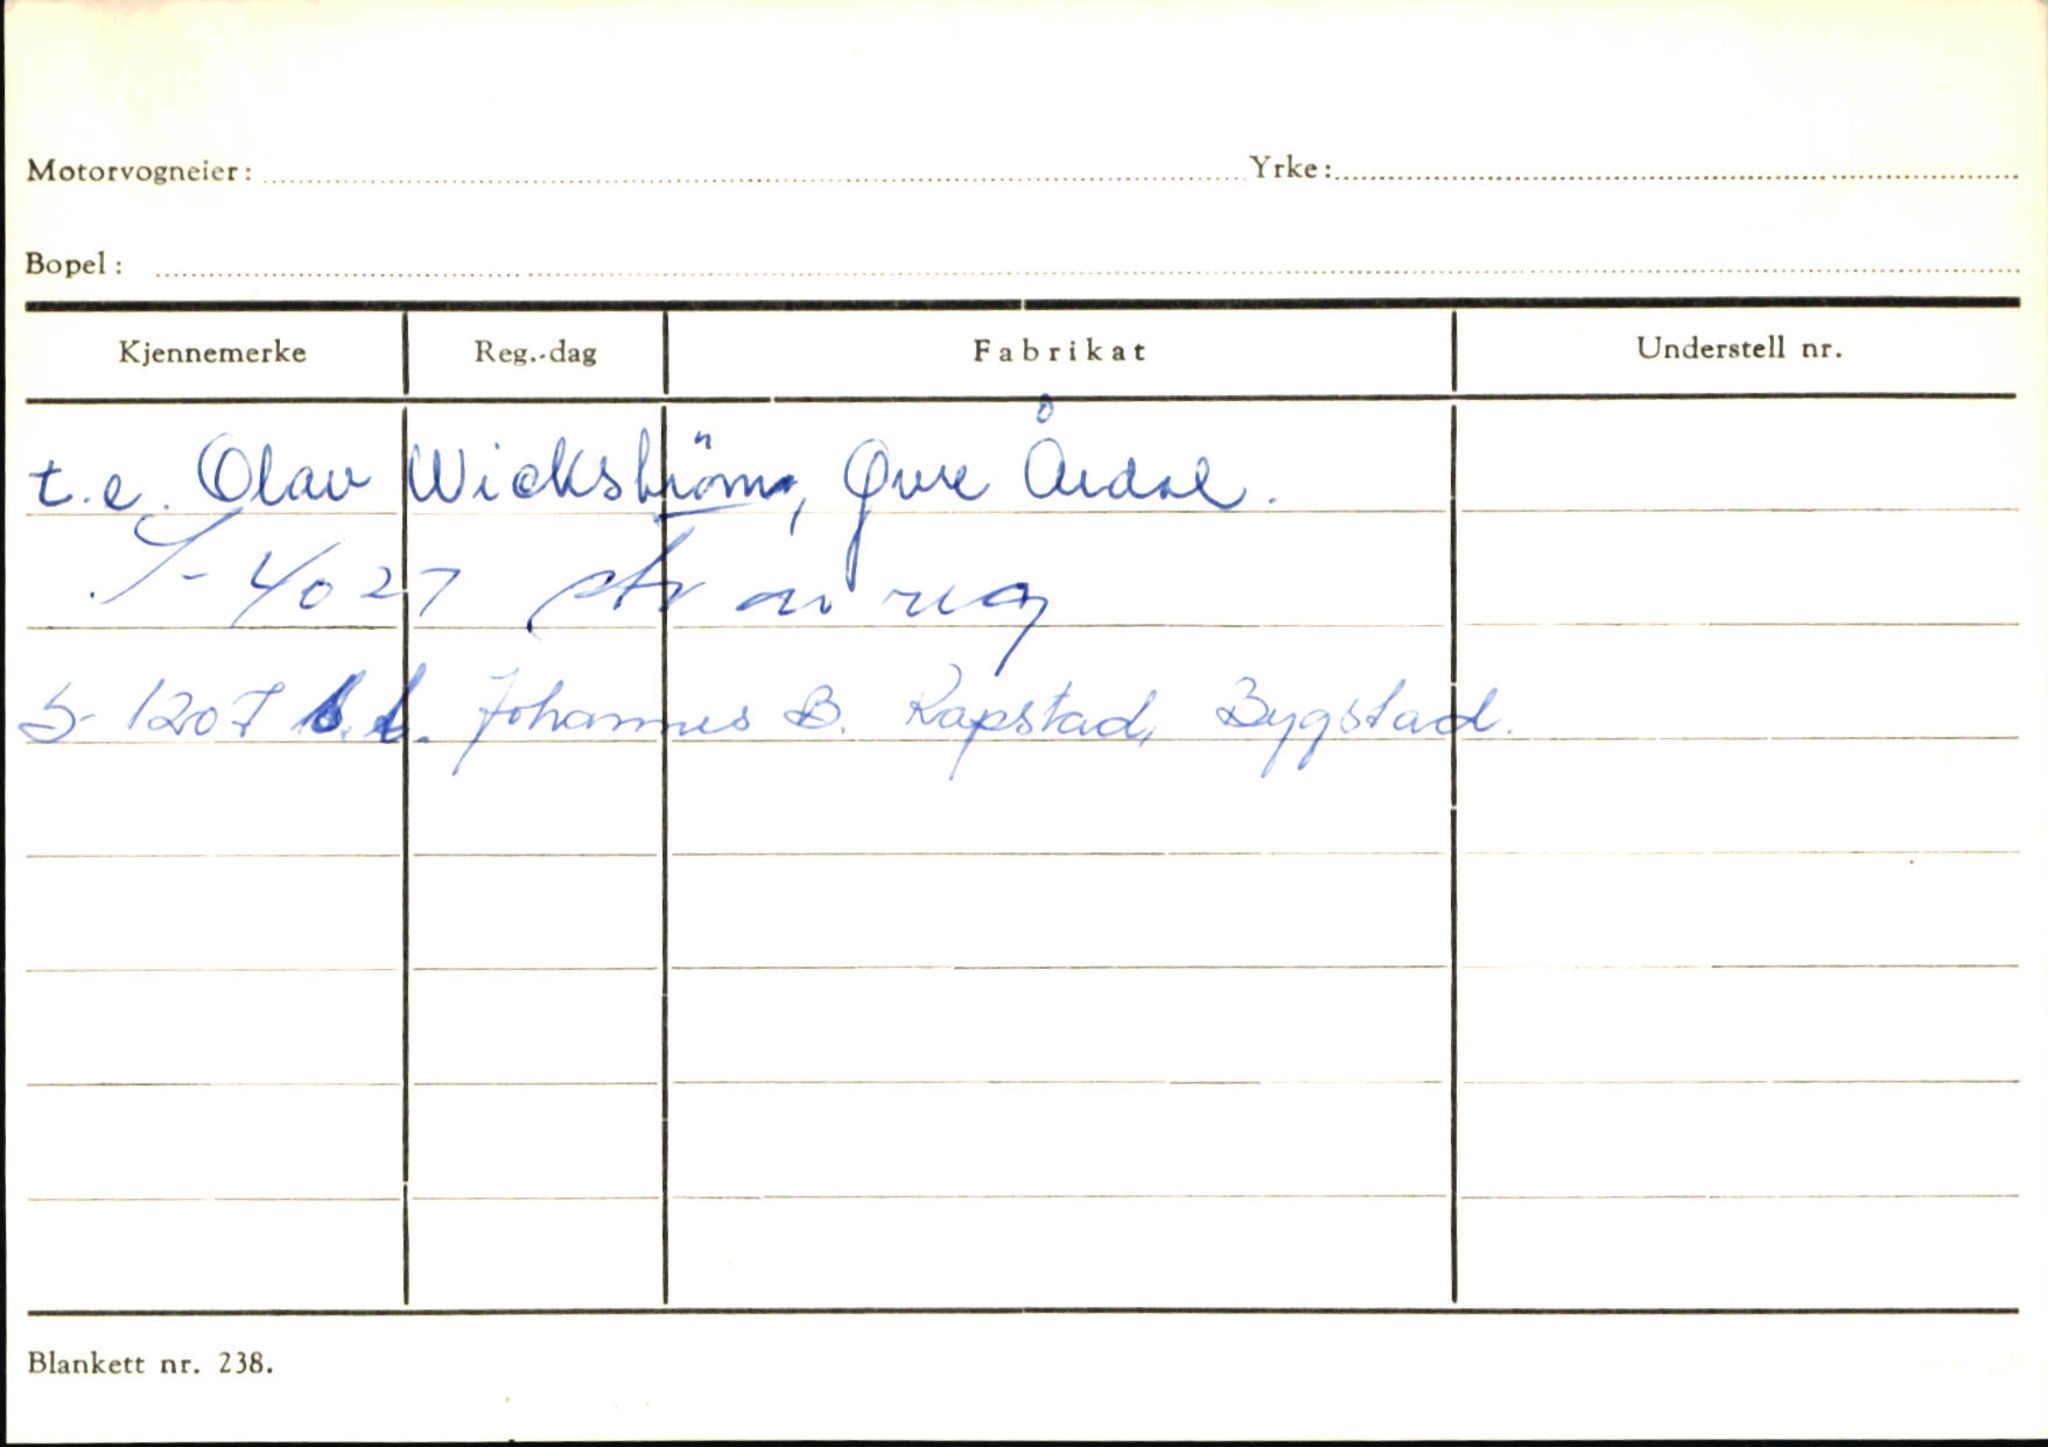 Motorvogneier: Yrke:
Bopel:
Kjennemerke Reg.-dag Fabrikat Understell nr.
t.e. Olav Wickström, Øvre Årdal.
S-4027 str av reg
S-1207 t.e. Johannes B. Kapstad, Bygstad.
Blankett nr. 238.